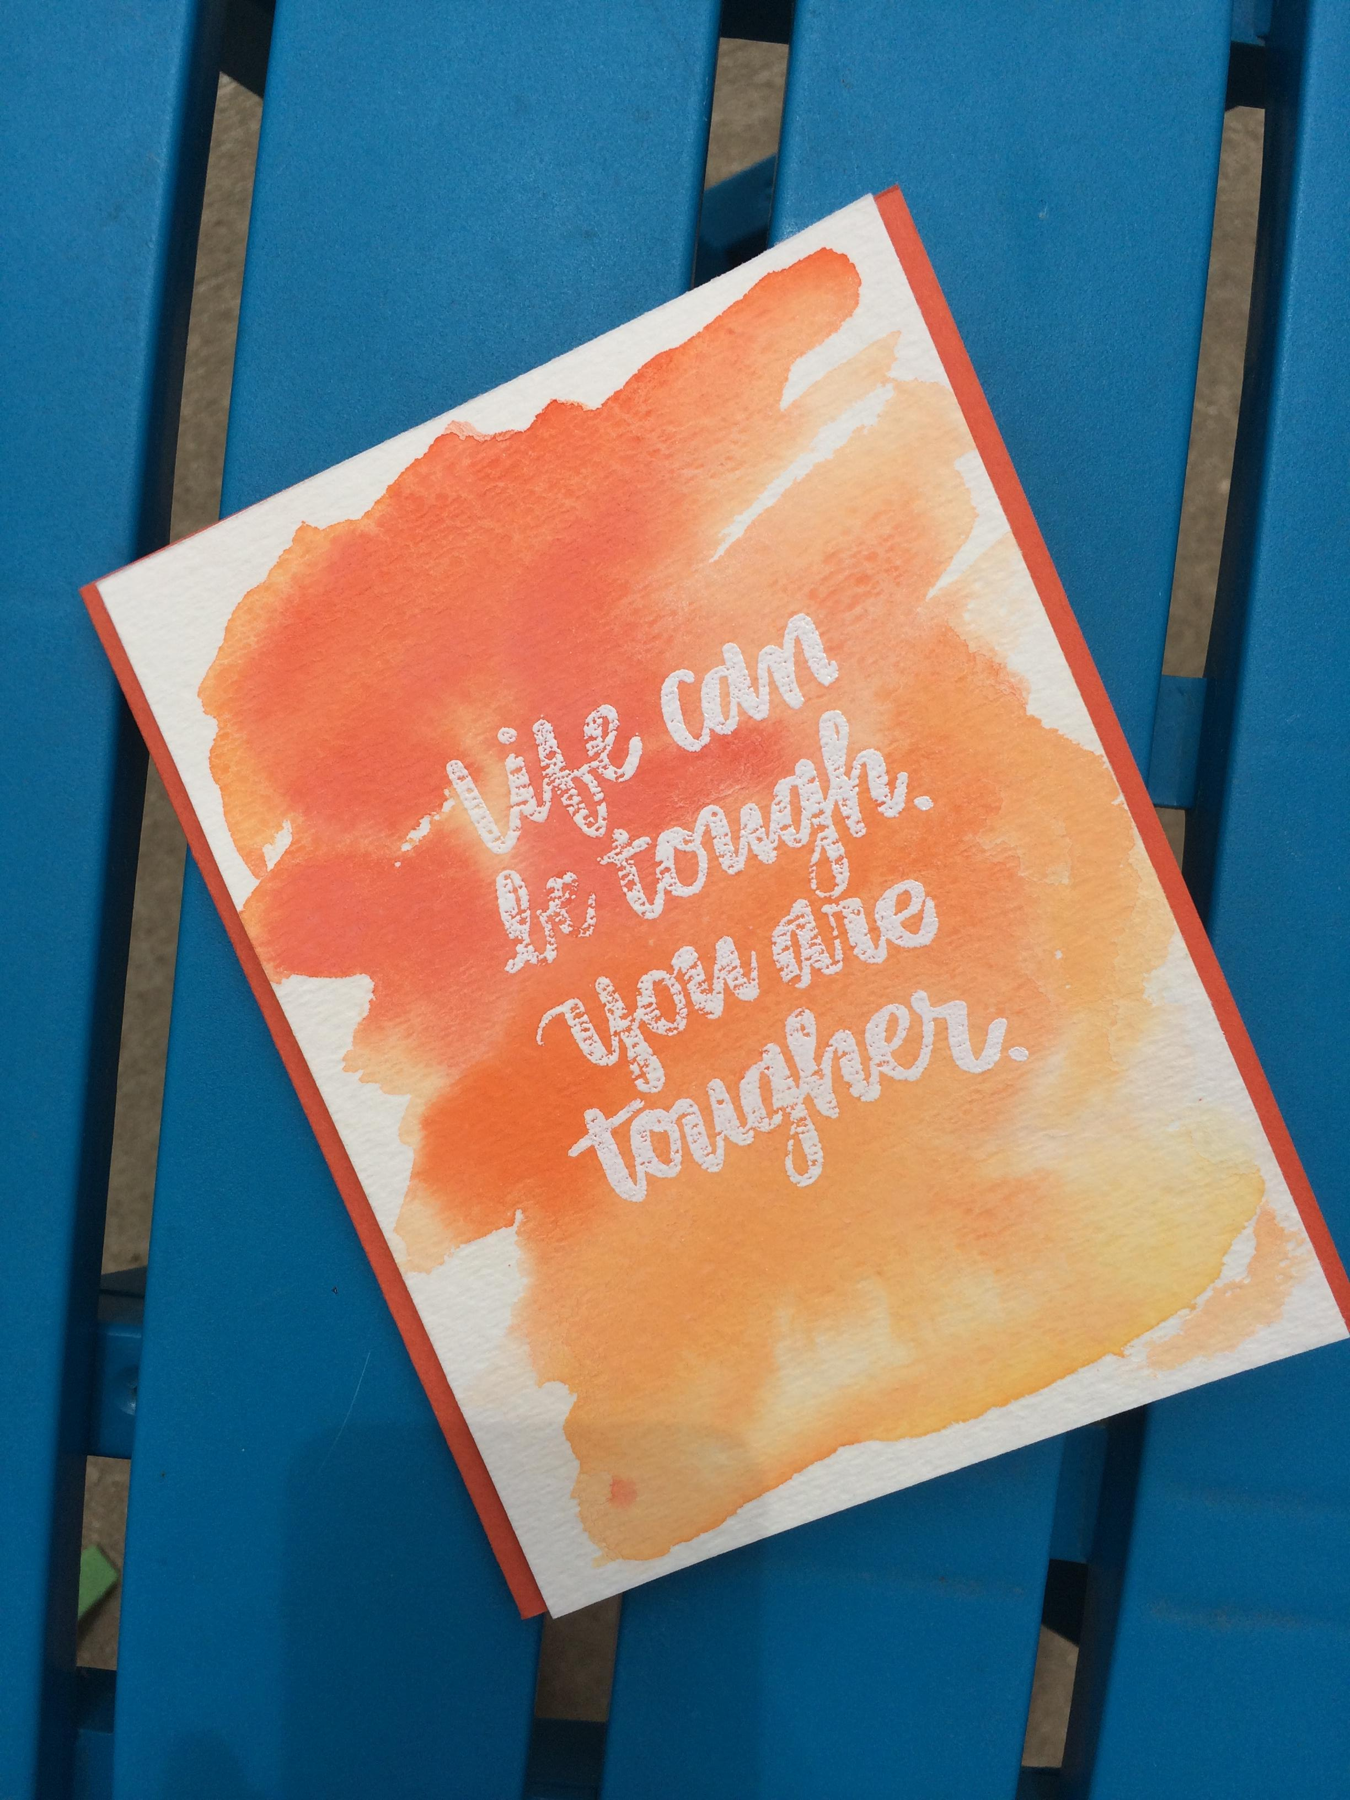 life can
be tough.
you are
tougher.